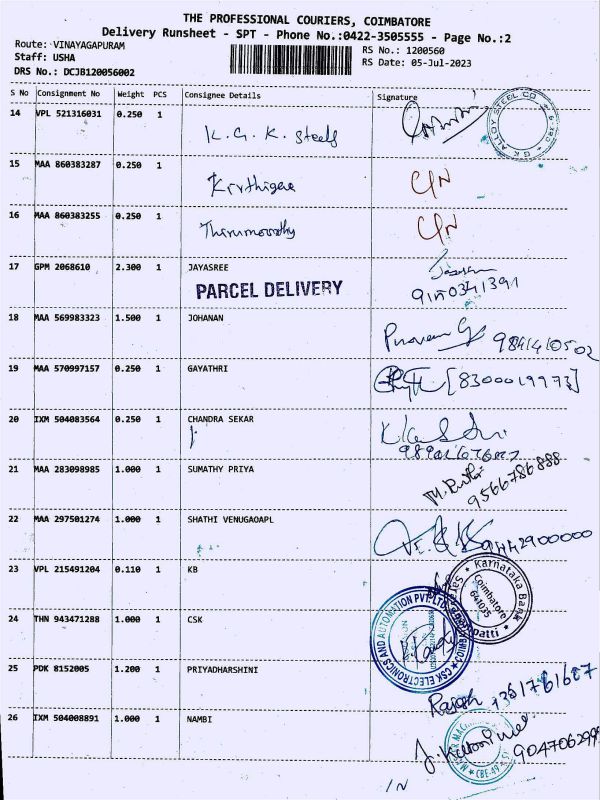 THE PROFESSIONAL COURIERS, COIMBATORE
Delivery Runsheet - SPT - Phone No.:0422-3505555 - Page No.:2
Route: VINAYAGAPURAM
Staff: USHA
DRS No.: DCJB120056002
RS No.: 1200560
RS Date: 05-Jul-2023
S No Consignment No Weight PCS Consignee Details Signature
14 VPL 521316031 0.250 1 K. G. K. Steels
ALLOY STEEL CO
15 MAA 860383287 0.250 1 Kirthigaa C/N
16 MAA 860383255 0.250 1 Thirumoorthy C/N
17 GPM 2068610 2.300 1 JAYASREE
PARCEL DELIVERY
9150341391
18 MAA 569983323 1.500 1 JOHANAN
9841410502
19 MAA 570997157 0.250 1 GAYATHRI [8300019973]
20 IXM 504083564 0.250 1 CHANDRA SEKAR
21 MAA 283098985 1.000 1 SUMATHY PRIYA
9566786888
22 MAA 297501274 1.000 1 SHATHI VENUGAOAPL 9442900000
23 VPL 215491204 0.110 1 KB
Karnataka Bank
Coimbatore
641035
24 THN 943471288 1.000 1 CSK
CSK ELECTRONICS AND AUTOMATION PVT.LTD.
25 PDK 8152005 1.200 1 PRIYADHARSHINI
Rajesh
26 IXM 504008891 1.000 1 NAMBI
CBE-49
IN